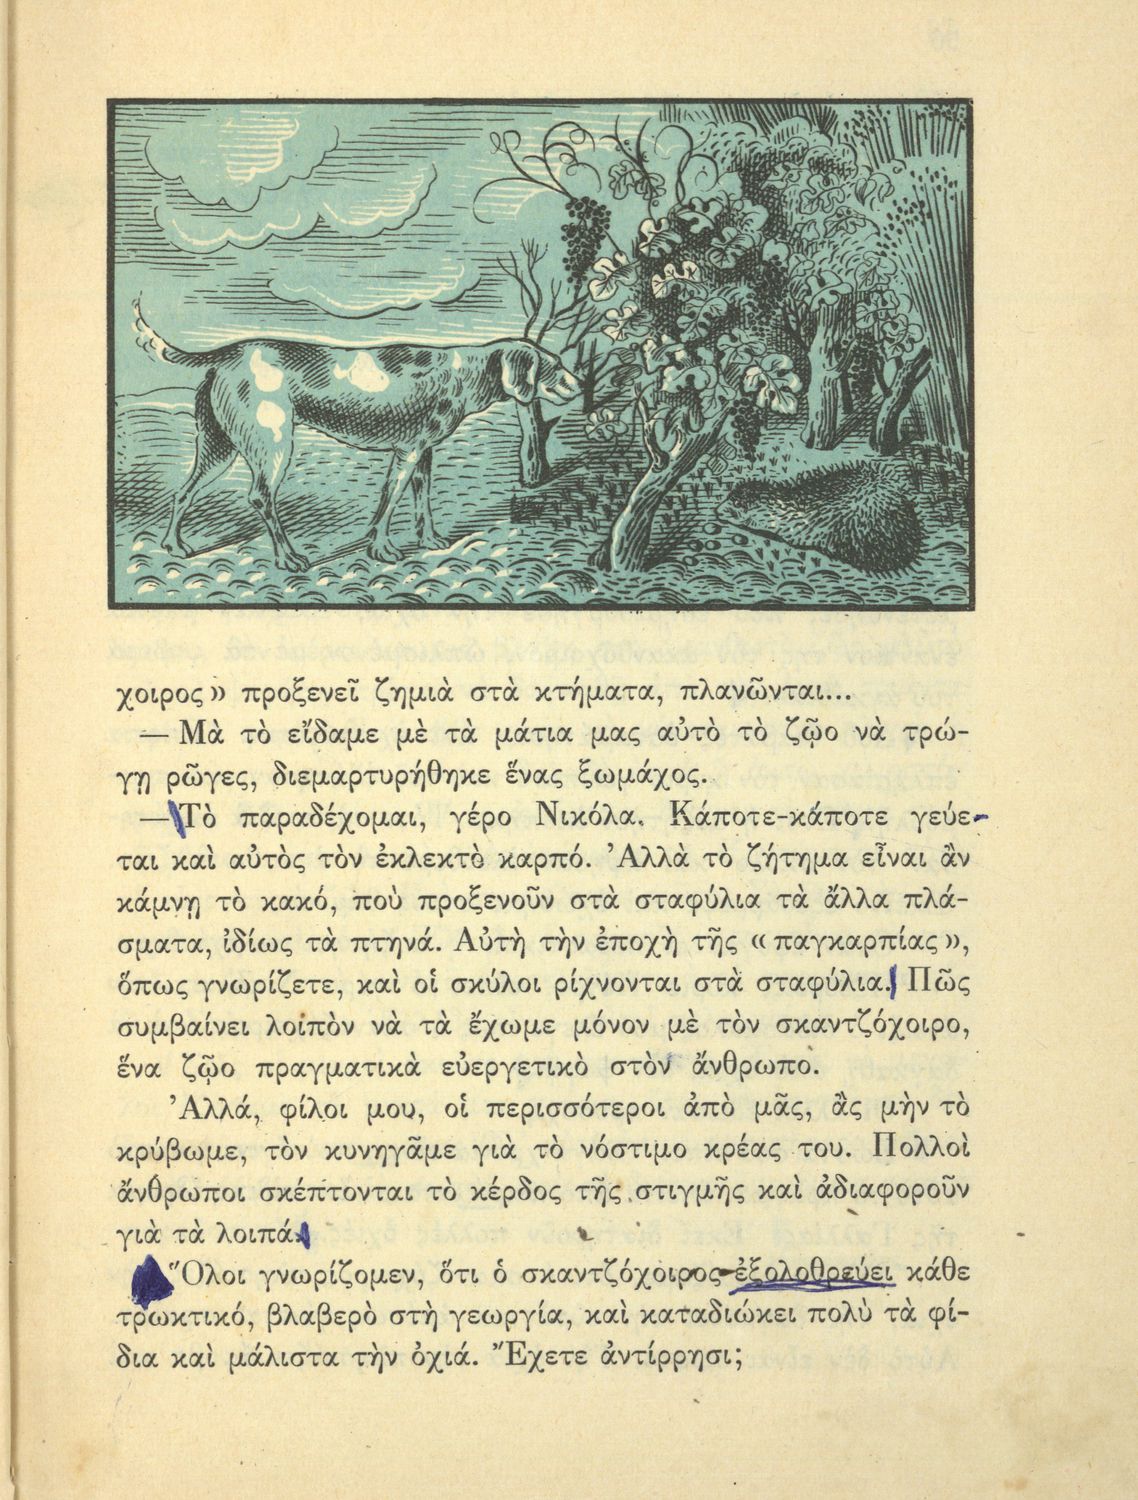 χοιρος» προξενεῖ ζημιὰ στὰ κτήματα, πλανῶνται...
— Μὰ τὸ εἴδαμε μὲ τὰ μάτια μας αὐτὸ τὸ ζῷο νὰ τρώ-
γῃ ρῶγες, διεμαρτυρήθηκε ἕνας ξωμάχος.
— Τὸ παραδέχομαι, γέρο Νικόλα. Κάποτε-κάποτε γεύε-
ται καὶ αὐτὸς τὸν ἐκλεκτὸ καρπό. Ἀλλὰ τὸ ζήτημα εἶναι ἂν
κάμνῃ τὸ κακό, ποὺ προξενοῦν στὰ σταφύλια τὰ ἄλλα πλά-
σματα, ἰδίως τὰ πτηνά. Αὐτὴ τὴν ἐποχὴ τῆς «παγκαρπίας»,
ὅπως γνωρίζετε, καὶ οἱ σκύλοι ρίχνονται στὰ σταφύλια. Πῶς
συμβαίνει λοιπὸν νὰ τὰ ἔχωμε μόνον μὲ τὸν σκαντζόχοιρο,
ἕνα ζῷο πραγματικὰ εὐεργετικὸ στὸν ἄνθρωπο.
Ἀλλά, φίλοι μου, οἱ περισσότεροι ἀπὸ μᾶς, ἂς μὴν τὸ
κρύβωμε, τὸν κυνηγᾶμε γιὰ τὸ νόστιμο κρέας του. Πολλοὶ
ἄνθρωποι σκέπτονται τὸ κέρδος τῆς στιγμῆς καὶ ἀδιαφοροῦν
γιὰ τὰ λοιπά.
Ὅλοι γνωρίζομεν, ὅτι ὁ σκαντζόχοιρος ἐξολοθρεύει κάθε
τρωκτικό, βλαβερὸ στὴ γεωργία, καὶ καταδιώκει πολὺ τὰ φί-
δια καὶ μάλιστα τὴν ὀχιά. Ἔχετε ἀντίρρησι;